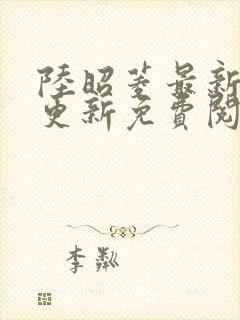 陸昭菱最新
更新免費閱
李粼